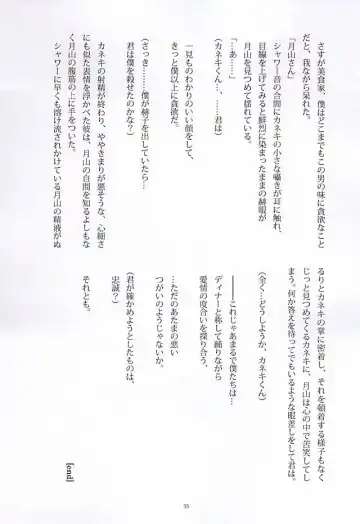 さすが美食家、僕はどこまでもこの男の味に貪欲なこと
だと、我ながら呆れる。
「月山さん」
「…あ……」
シャワー音の合間にカネキの小さな囁きが耳に触れ、
目線を上げてみると鮮烈に染まったままの赫眼が
月山を見つめて揺れている。
(カネキくん…、……君は)
一見ものわかりのいい顔をして、
きっと僕以上に貪欲だ。
(さっき………僕が赫子を出していたら…
君は僕を殺せたのかな?)
カネキの射精が終わり、ややきまりが悪そうな、心細さ
にも似た表情を浮かべた彼は、月山の自問を知るよしもな
く月山の腹筋の上に手をついた。
シャワーに早くも溶け流されかけている月山の精液がぬ
るりとカネキの掌に密着し、それを頓着する様子もなく
じっと見つめてくるカネキに、月山は心の中で苦笑してし
まう。何か答えを待ってでもいるような眼差しをして君は。
(全く…どうしようか、カネキくん)
――――これじゃあまるで僕たちは…
ディナーと称して踊りながら
愛情の度合いを探り合う、
…ただのあたまの悪い
つがいのようじゃないか。
(君が確かめようとしたものは、
忠誠?)
それとも。
【end】
35